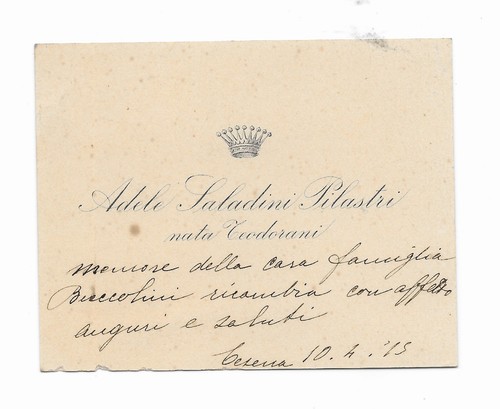 Adele Saladini Pilastri
nata Teodorani
memore della cara famiglia
ricambia con affetto
auguri e saluti
Cesena 10.4.'15